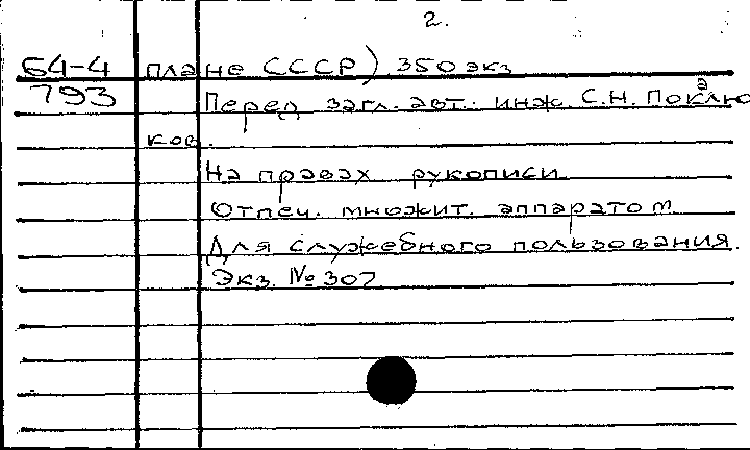 2.
64-4 плане СССР) 350 экз
793 Перед загл. авт.: инж. С.Н. Поклю
ков.
На правах рукописи
Отпеч. множит. аппаратом
Для служебного пользования.
Экз. № 307